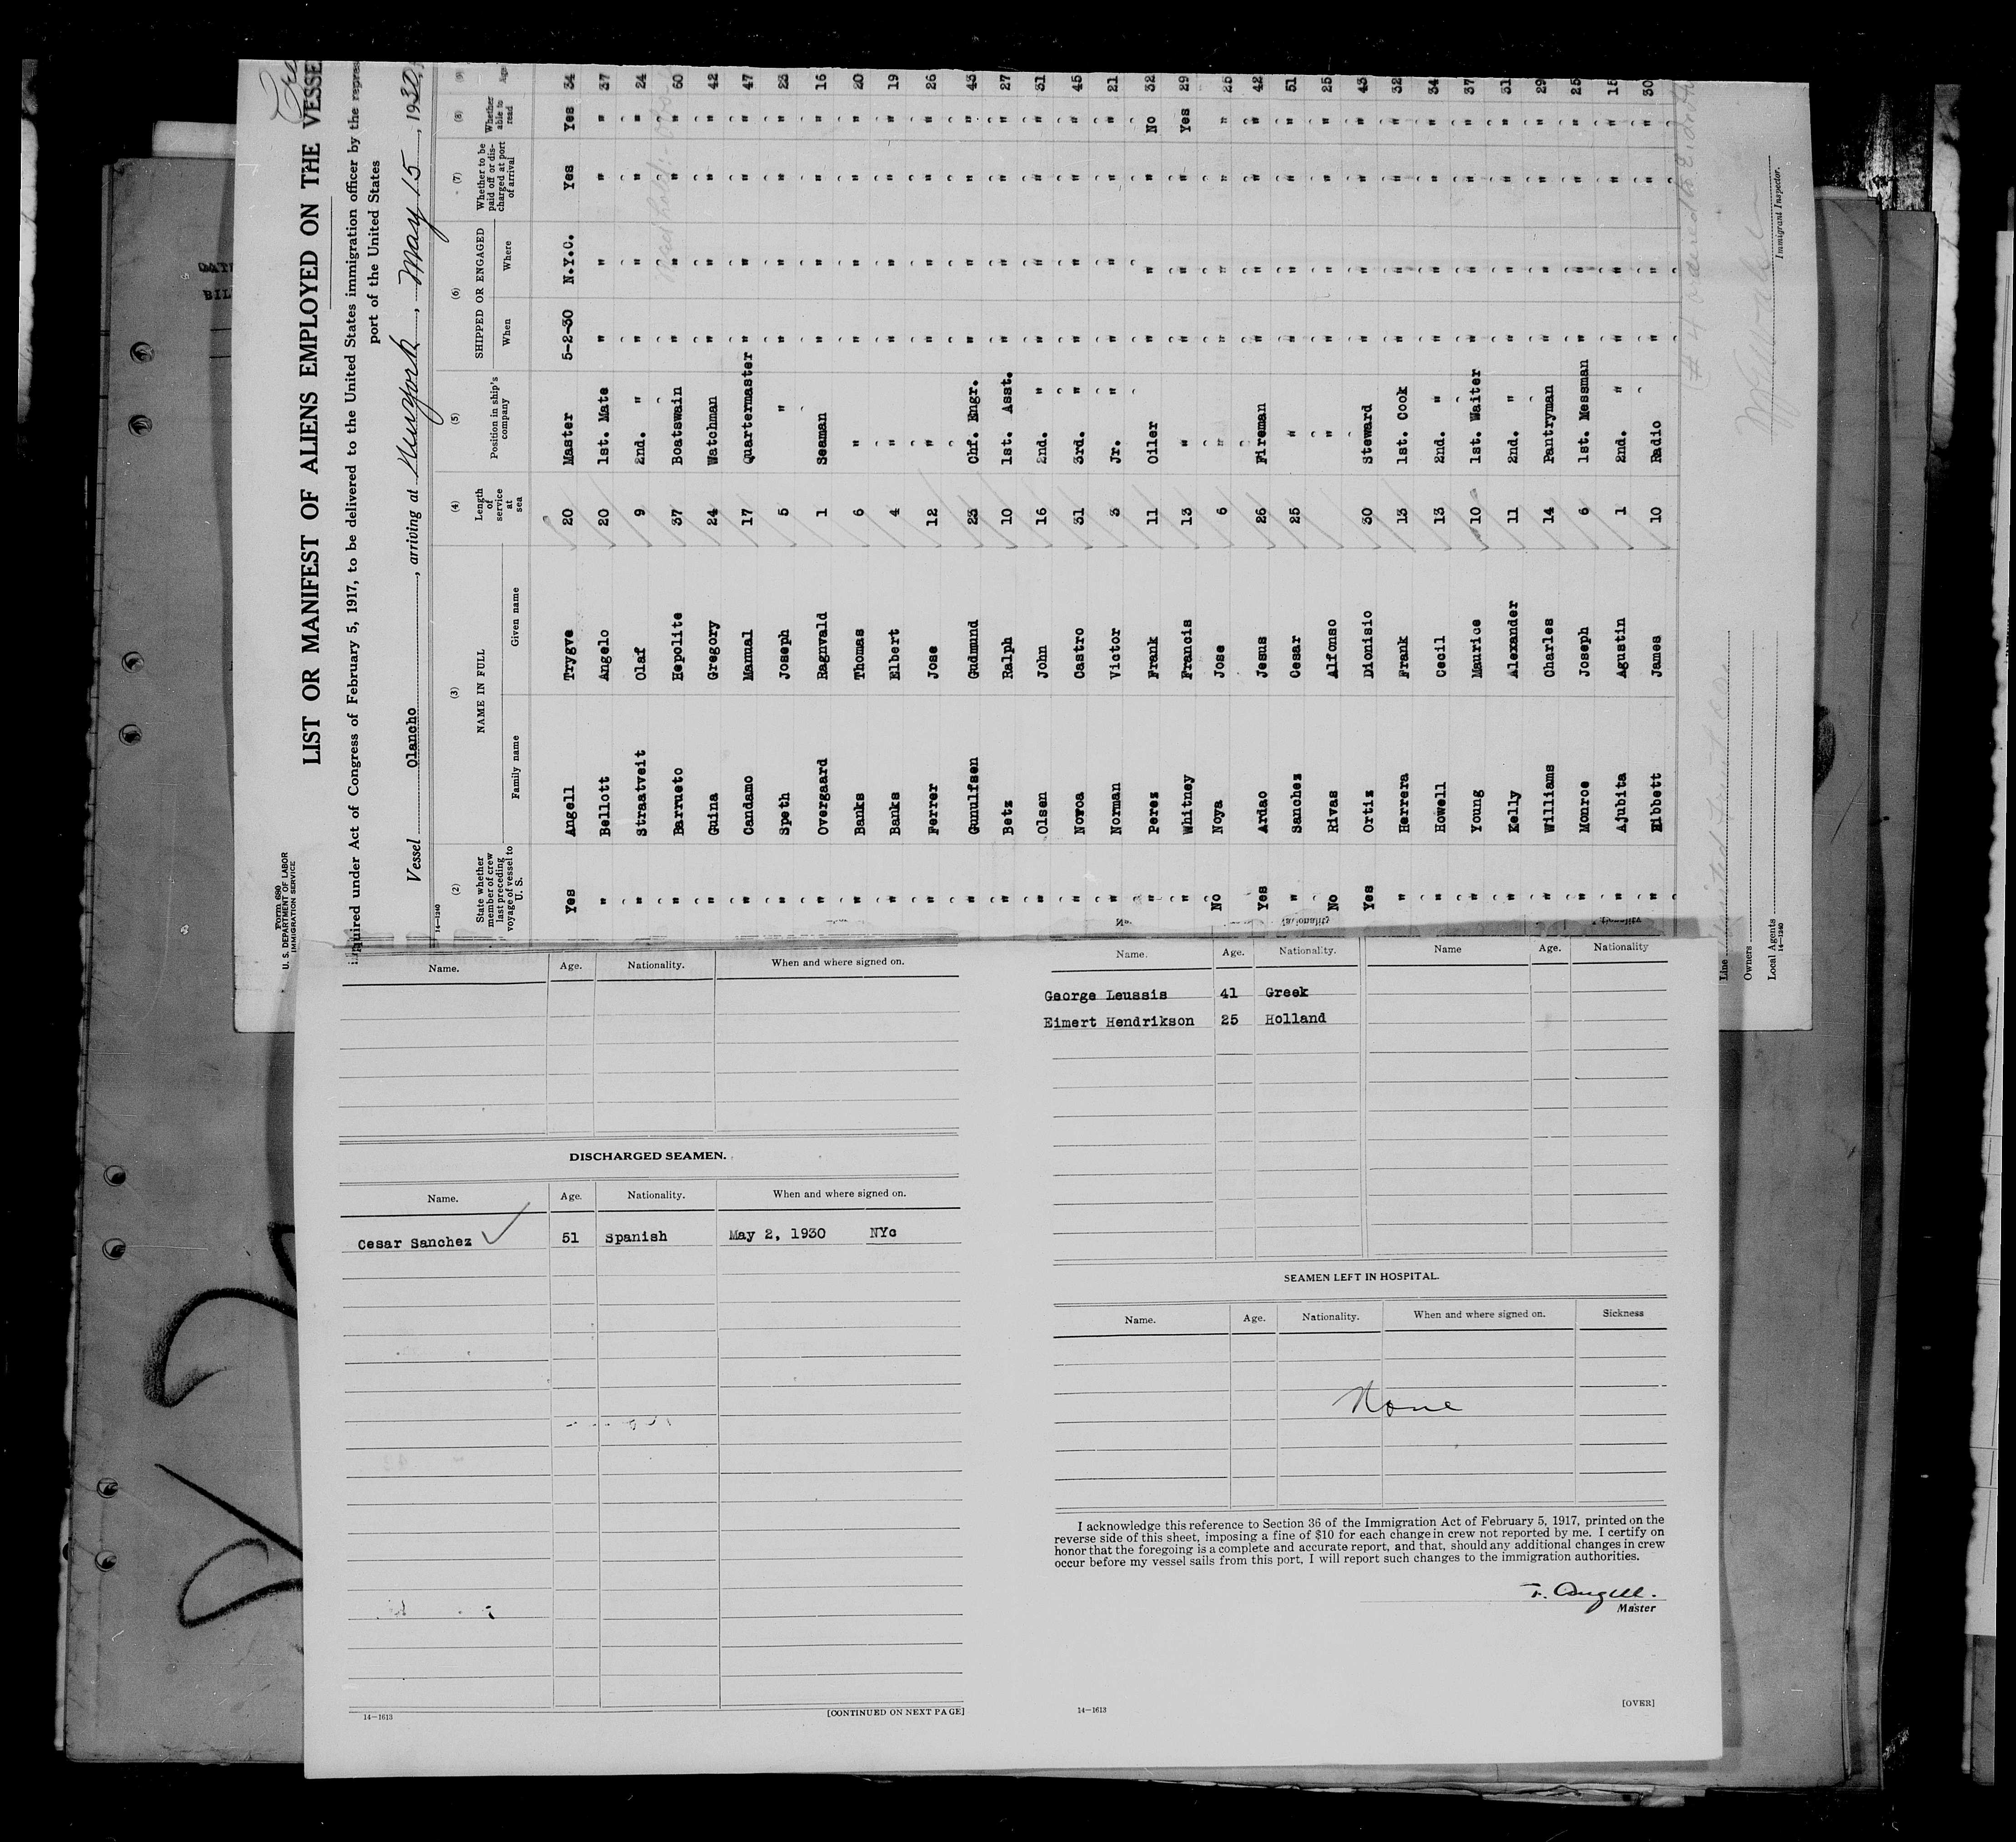 Form 680
U. S. DEPARTMENT OF LABOR
IMMIGRATION SERVICE
LIST OR MANIFEST OF ALIENS EMPLOYED ON THE VESSE
quired under Act of Congress of February 5, 1917, to be delivered to the United States immigration officer by the repres
port of the United States
Vessel Olancho, arriving at Newyork, May 15, 1930,
14—1240
(2) (3) (4) (5) (6) (7) (8) (9)
State whether member of crew last preceding voyage of vessel to U. S. NAME IN FULL Family name Given name Length of service at sea Position in ship's company SHIPPED OR ENGAGED When Where Whether to be paid off or discharged at port of arrival Whether able to read Age
Yes Angell Trygve 20 Master 5-2-30 N.Y.C. Yes Yes 34
" Bellott Angelo 20 1st. Mate " " " " 37
" Straatveit Olaf 9 2nd. " " " " " 24
" Barrueto Hepolite 37 Boatswain " " " " 60
" Guina Gregory 24 Watchman " " " " 42
" Candamo Manual 17 Quartermaster " " " " 47
" Speth Joseph 5 " " " " " 23
" Overgaard Ragnvald 1 Seaman " " " " 16
" Banks Thomas 6 " " " " " 20
" Banks Elbert 4 " " " " " 19
" Ferrer Jose 12 " " " " " 26
" Gunulfsen Gudmund 23 Chf. Engr. " " " " 43
" Betz Ralph 10 1st. Asst. " " " " 27
" Olsen John 16 2nd. " " " " " 31
" Novoa Castro 31 3rd. " " " " " 45
" Norman Victor 3 Jr. " " " " " 21
" Perez Frank 11 Oiler " " " No 32
" Whitney Francis 13 " " " " Yes 29
No Noya Jose 6 " " " " " 25
Yes Ardao Jesus 26 Fireman " " " " 42
" Sanchez Cesar 25 " " " " " 51
No Rivas Alfonso " " " " " 25
Yes Ortiz Dionisio 30 Steward " " " " 43
" Herrera Frank 13 1st. Cook " " " " 32
" Howell Cecil 13 2nd. " " " " " 34
" Young Maurice 10 1st. Waiter " " " " 37
" Kelly Alexander 11 2nd. " " " " " 31
" Williams Charles 14 Pantryman " " " " 29
" Monroe Joseph 6 1st. Messman " " " " 25
" Ajubita Agustin 1 2nd. " " " " " 15
" Hibbett James 10 Radio " " " " 30
# 4 ordered
Line United Fruit Co.
Owners
Local Agents
14—1240
Immigrant Inspector.
Name. Age. Nationality. When and where signed on.
DISCHARGED SEAMEN.
Name. Age. Nationality. When and where signed on.
Cesar Sanchez 51 Spanish May 2, 1930 NYc
14—1613
[CONTINUED ON NEXT PAGE]
Name. Age. Nationality. Name Age. Nationality
George Leussis 41 Greek
Eimert Hendrikson 25 Holland
SEAMEN LEFT IN HOSPITAL.
Name. Age. Nationality. When and where signed on. Sickness
None
I acknowledge this reference to Section 36 of the Immigration Act of February 5, 1917, printed on the
reverse side of this sheet, imposing a fine of $10 for each change in crew not reported by me. I certify on
honor that the foregoing is a complete and accurate report, and that, should any additional changes in crew
occur before my vessel sails from this port, I will report such changes to the immigration authorities.
T. Angell.
Master
14—1613
[OVER]